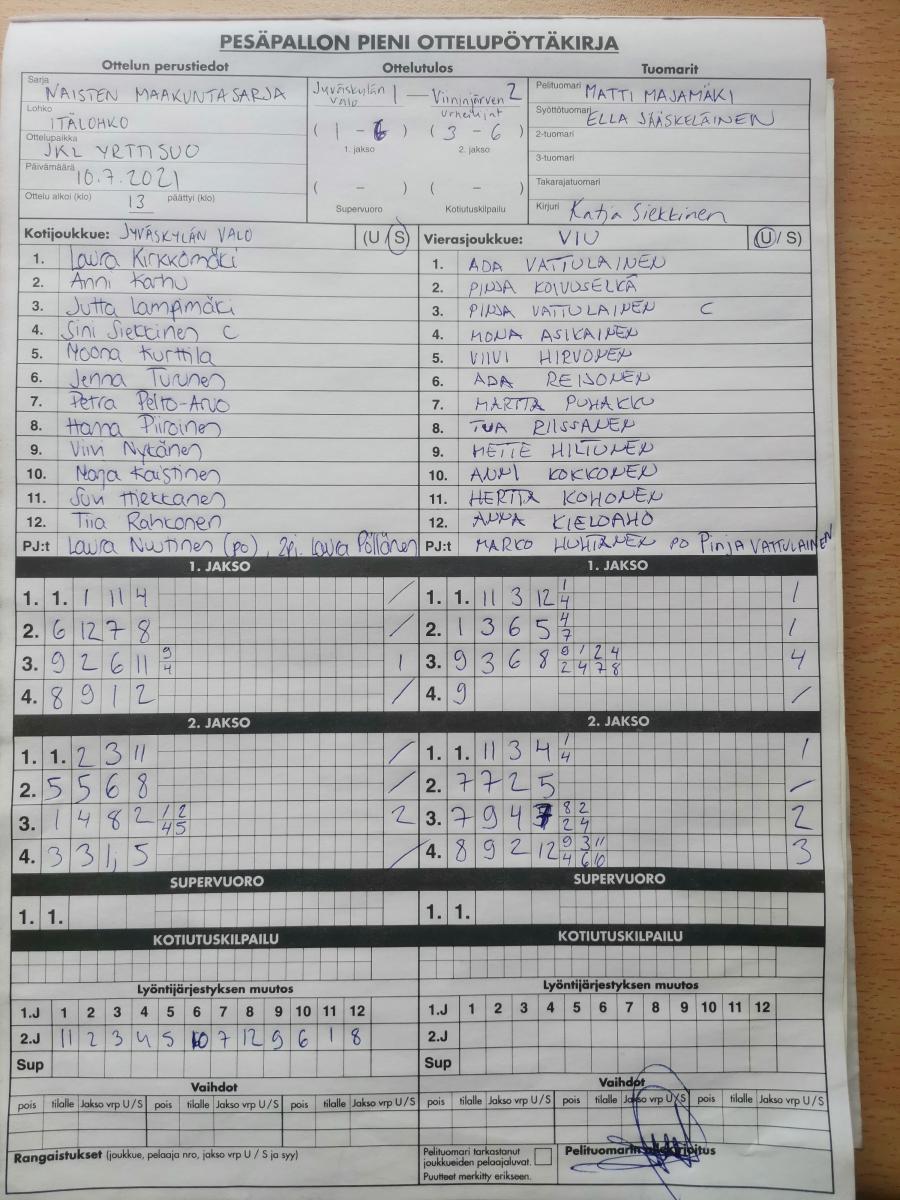 PESÄPALLON PIENI OTTELUPÖYTÄKIRJA
Ottelun perustiedot Ottelutulos Tuomarit
Sarja NAISTEN MAAKUNTASARJA
Lohko ITÄLOHKO
Ottelupaikka JKL YRTTISUO
Päivämäärä 10.7.2021
Ottelu alkoi (klo) 13 päättyi (klo)
Jyväskylän Valo 1 — Viininjärven Urheilijat 2
( 1 - 6 ) ( 3 - 6 )
1. jakso 2. jakso
( - ) ( - )
Supervuoro Kotiutuskilpailu
Pelituomari MATTI MAJAMÄKI
Syöttötuomari ELLA JÄÄSKELÄINEN
2-tuomari
3-tuomari
Takarajatuomari
Kirjuri Katja Siekkinen
Kotijoukkue: JYVÄSKYLÄN VALO (U / S) Vierasjoukkue: VIU (U / S)
1. Laura Kirkkomäki 1. ADA VATTULAINEN
2. Anni Karhu 2. PINJA KOIVUSELKÄ
3. Jutta Lampimäki 3. PINJA VATTULAINEN C
4. Sini Siekkinen C 4. MONA ASIKAINEN
5. Noona Kurttila 5. VIIVI HIRVONEN
6. Jenna Turunen 6. ADA REIJONEN
7. Petra Pelto-Arvo 7. MARTTA PUHAKKU
8. Hanna Piiroinen 8. TUA RIISSANEN
9. Viivi Nykänen 9. METTE HILTUNEN
10. Marja Kaistinen 10. ANNI KOKKONEN
11. Suvi Hiekkanen 11. HERTTA KOHONEN
12. Tiia Rahkonen 12. ANNA KIELOAHO
PJ:t Laura Nuutinen (po), 2pj. Laura Pöllänen PJ:t MARKO HUHTANEN PO Pinja VATTULAINEN
1. JAKSO 1. JAKSO
1. 1. 1 11 4 / 1. 1. 11 3 12 1 4 1
2. 6 12 7 8 / 2. 1 3 6 5 4 7 1
3. 9 2 6 11 9 4 1 3. 9 3 6 8 9 1 2 4 2 4 7 8 4
4. 8 9 1 2 / 4. 9 /
2. JAKSO 2. JAKSO
1. 1. 2 3 11 / 1. 1. 11 3 4 1 4 1
2. 5 5 6 8 / 2. 7 7 2 5 /
3. 1 4 8 2 1 2 4 5 2 3. 7 9 4 7 8 2 2 4 2
4. 3 3 1, 5 / 4. 8 9 2 12 9 3 11 4 6 10 3
SUPERVUORO SUPERVUORO
1. 1. 1. 1.
KOTIUTUSKILPAILU KOTIUTUSKILPAILU
Lyöntijärjestyksen muutos Lyöntijärjestyksen muutos
1.J 1 2 3 4 5 6 7 8 9 10 11 12 1.J 1 2 3 4 5 6 7 8 9 10 11 12
2.J 11 2 3 4 5 10 7 12 9 6 1 8 2.J
Sup Sup
Vaihdot Vaihdot
pois tilalle Jakso vrp U / S pois tilalle Jakso vrp U / S pois tilalle Jakso vrp U / S pois tilalle Jakso vrp U / S pois tilalle Jakso vrp U / S pois tilalle Jakso vrp U / S
Rangaistukset (joukkue, pelaaja nro, jakso vrp U / S ja syy)
Pelituomari tarkastanut
joukkueiden pelaajaluvat.
Puutteet merkitty erikseen.
Pelituomarin allekirjoitus